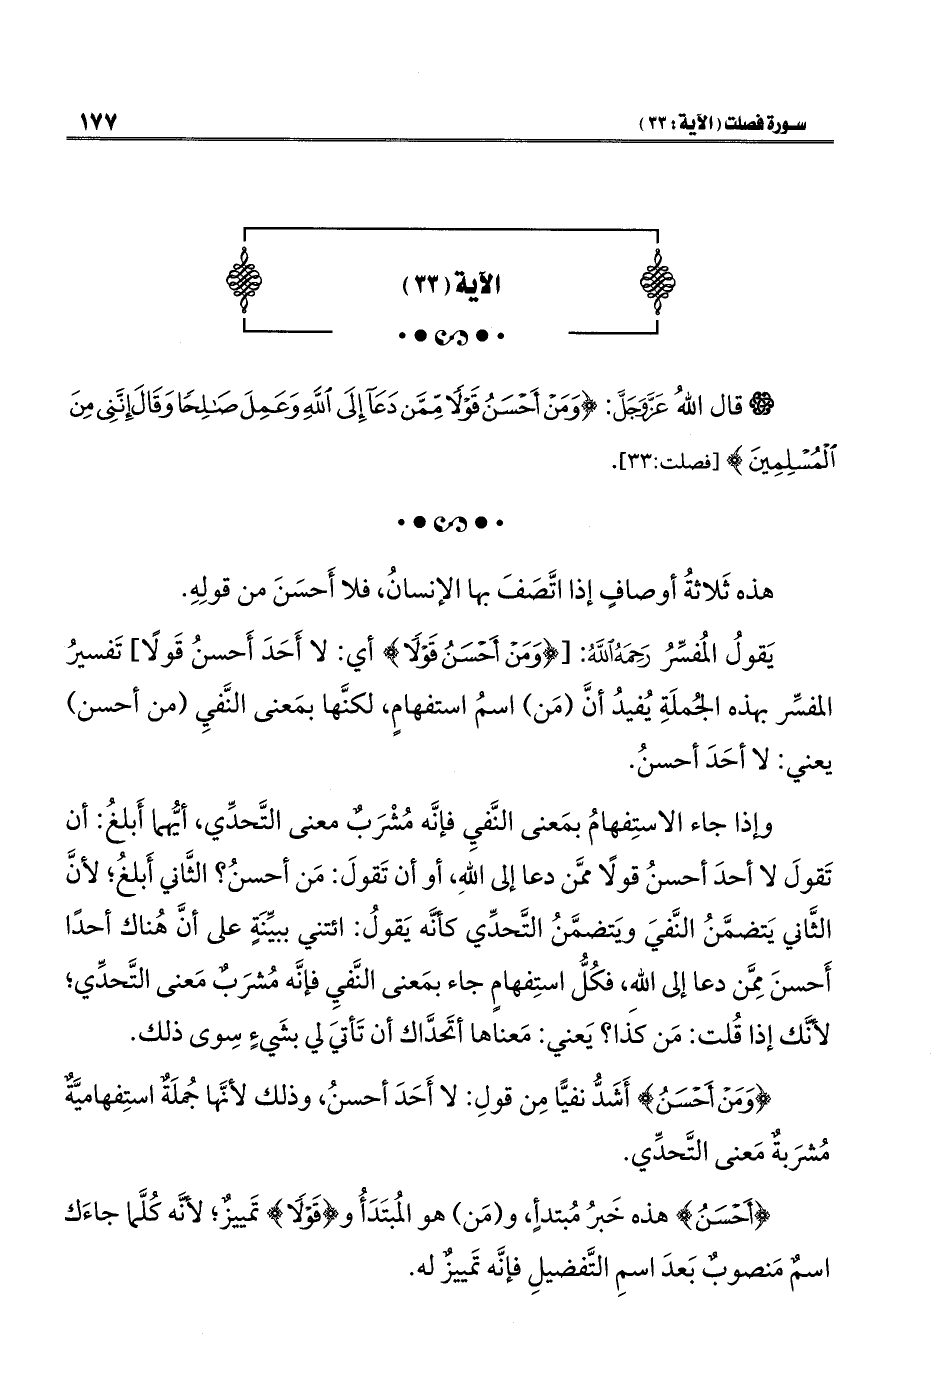 سورة فصلت (الآية: ٣٣) ١٧٧
الآية (٣٣)
قال اللهُ عَزَّوَجَلَّ: ﴿وَمَنْ أَحْسَنُ قَوْلًا مِّمَّن دَعَآ إِلَى ٱللَّهِ وَعَمِلَ صَـٰلِحًا وَقَالَ إِنَّنِى مِنَ
ٱلْمُسْلِمِينَ﴾ [فصلت:٣٣].
هذه ثَلاثةُ أوصافٍ إذا اتَّصَفَ بها الإنسانُ، فلا أَحسَنَ من قولِهِ.
يَقولُ المُفسِّرُ رَحِمَهُ ٱللَّهُ: [﴿وَمَنْ أَحْسَنُ قَوْلًا﴾ أي: لا أَحَدَ أَحسنُ قَولًا] تَفسيرُ
المفسِّر بهذه الجُملَةِ يُفيدُ أنَّ (مَن) اسمُ استفهامٍ، لكنَّها بمَعنى النَّفيِ (من أحسن)
يعني: لا أحَدَ أحسنُ.
وإذا جاء الاستِفهامُ بمَعنى النَّفيِ فإنَّه مُشْرَبٌ معنى التَّحدِّي، أيُّهما أَبلغُ: أن
تَقولَ لا أحدَ أحسنُ قولًا ممَّن دعا إلى اللهِ، أو أن تَقولَ: مَن أحسنُ؟ الثَّاني أَبلغُ؛ لأنَّ
الثَّاني يَتضمَّنُ النَّفيَ ويَتضمَّنُ التَّحدِّي كأنَّه يَقولُ: ائتني ببيِّنَةٍ على أنَّ هُناك أحدًا
أَحسنَ مِمَّن دعا إلى اللهِ، فكُلُّ استِفهامٍ جاء بمَعنى النَّفيِ فإنَّه مُشرَبٌ مَعنى التَّحدِّي؛
لأنَّك إذا قُلت: مَن كذا؟ يَعني: مَعناها أتحَدَّاك أن تَأتيَ لي بشَيءٍ سِوى ذلك.
﴿وَمَنْ أَحْسَنُ﴾ أَشَدُّ نفيًا مِن قولِ: لا أَحَدَ أحسنُ، وذلك لأنَّها جُملَةٌ استِفهاميَّةٌ
مُشرَبةٌ مَعنى التَّحدِّي.
﴿أَحْسَنُ﴾ هذه خَبرُ مُبتدأٍ، و(مَن) هو المُبتَدَأُ و﴿قَوْلًا﴾ تمييزٌ؛ لأنَّه كُلَّما جاءَك
اسمٌ مَنصوبٌ بَعدَ اسمِ التَّفضيلِ فإنَّه تمييزٌ له.